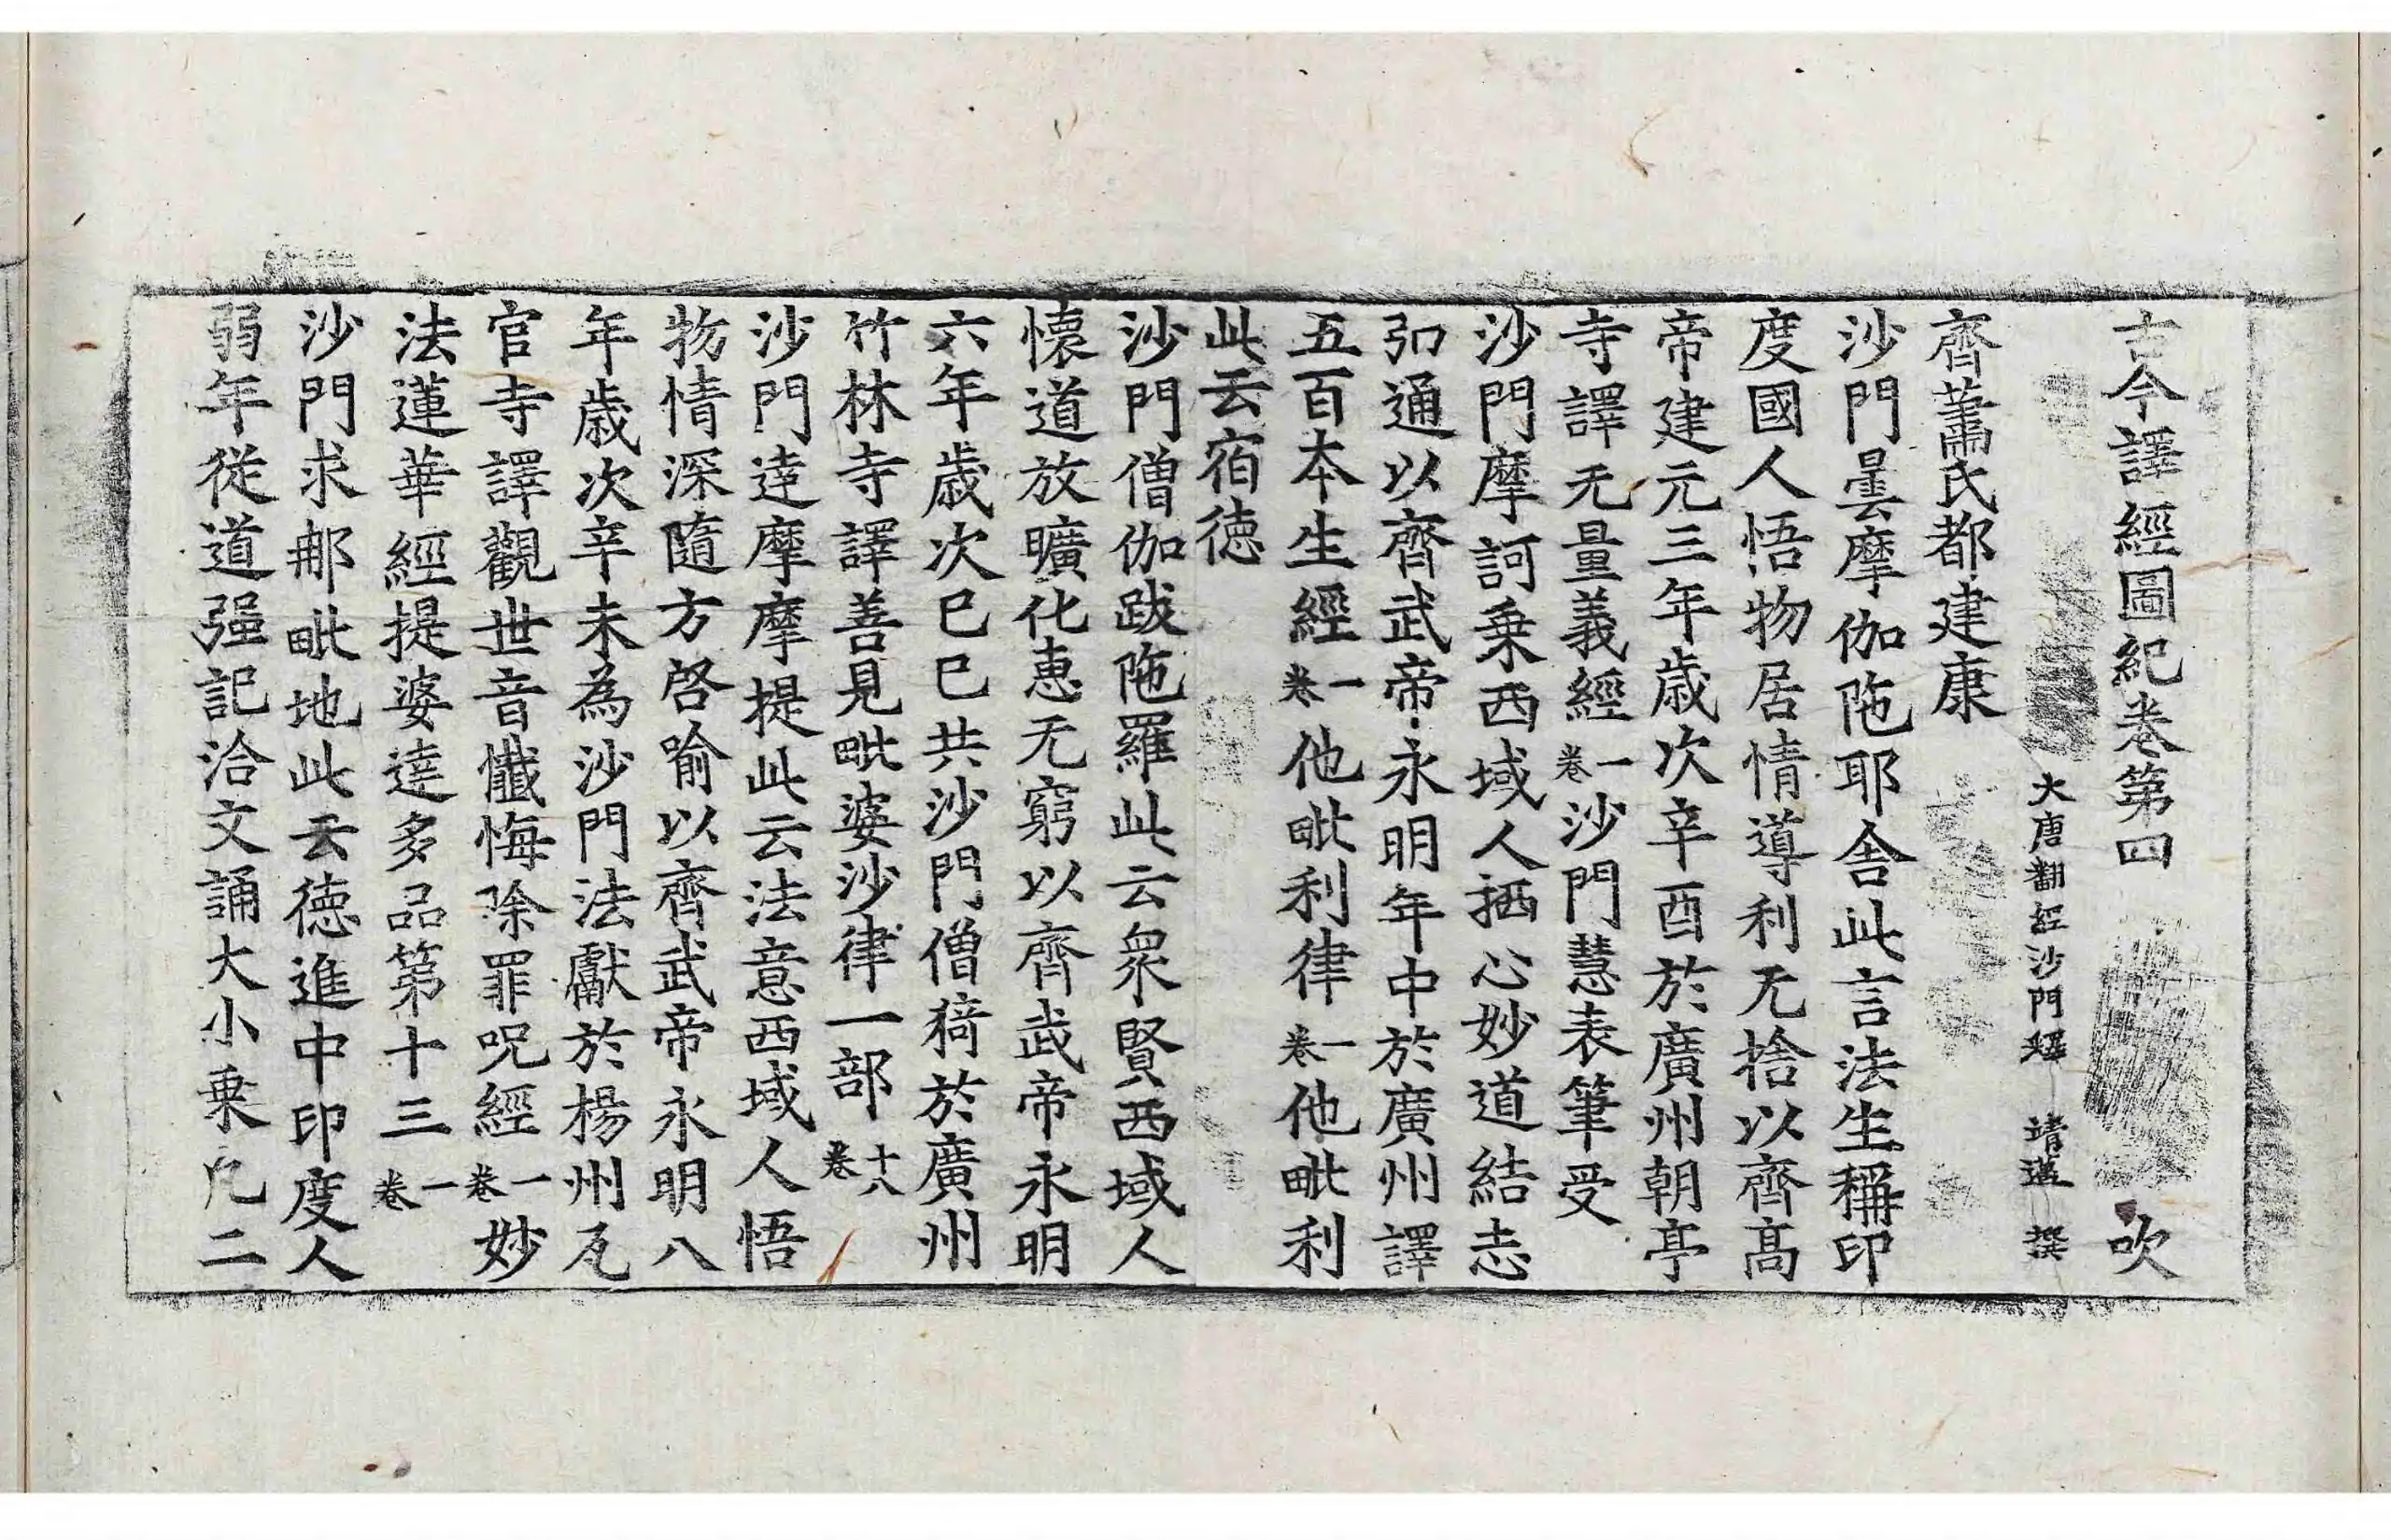 古今譯經圖紀卷第四 吹
大唐翻經沙門釋 靖邁 撰
齊蕭氏都建康
沙門曇摩伽陁耶舍此言法生稱印
度國人悟物居情導利无捨以齊髙
帝建元三年歳次辛酉於廣州朝亭
寺譯无量義經一卷沙門慧表筆受
沙門摩訶乗西域人栖心妙道結志
弘通以齊武帝永明年中於廣州譯
五百本生經一卷他毗利律一卷他毗利
此云宿徳
沙門僧伽跋陁羅此云衆賢西域人
懐道放曠化惠无窮以齊武帝永明
六年歳次巳巳共沙門僧猗於廣州
竹林寺譯善見毗婆沙律一部十八卷
沙門逹摩摩提此云法意西域人悟
物情深隨方啓喻以齊武帝永明八
年歳次辛未為沙門法獻於楊州瓦
官寺譯觀世音懺悔除罪呪經一卷妙
法蓮華經提婆逹多品第十三一卷
沙門求那毗地此云徳進中印度人
弱年從道强記洽文誦大小乗凡二